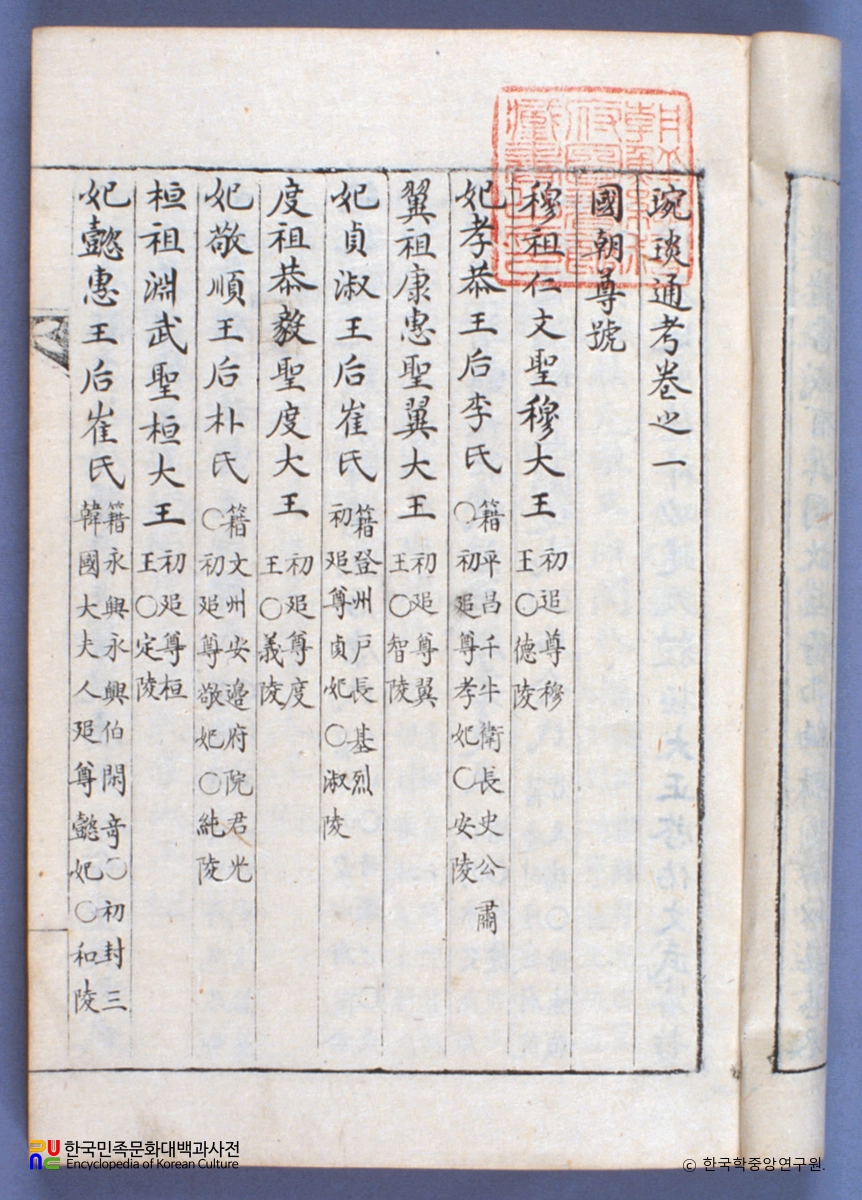 琬琰通考卷之一
國朝尊號
穆祖仁文聖穆大王 初追尊穆王○德陵
妃孝恭王后李氏 籍平昌千牛衛長史公肅○初追尊孝妃○安陵
翼祖康惠聖翼大王 初追尊翼王○智陵
妃貞淑王后崔氏 籍登州戶長基烈初追尊貞妃○淑陵
度祖恭毅聖度大王 初追尊度王○義陵
妃敬順王后朴氏 籍文州安邊府院君光○初追尊敬妃○純陵
桓祖淵武聖桓大王 初追尊桓王○定陵
妃懿惠王后崔氏 籍永興永興伯閑奇○初封三韓國大夫人追尊懿妃○和陵
한국민족문화대백과사전
Encyclopedia of Korean Culture
ⓒ 한국학중앙연구원.